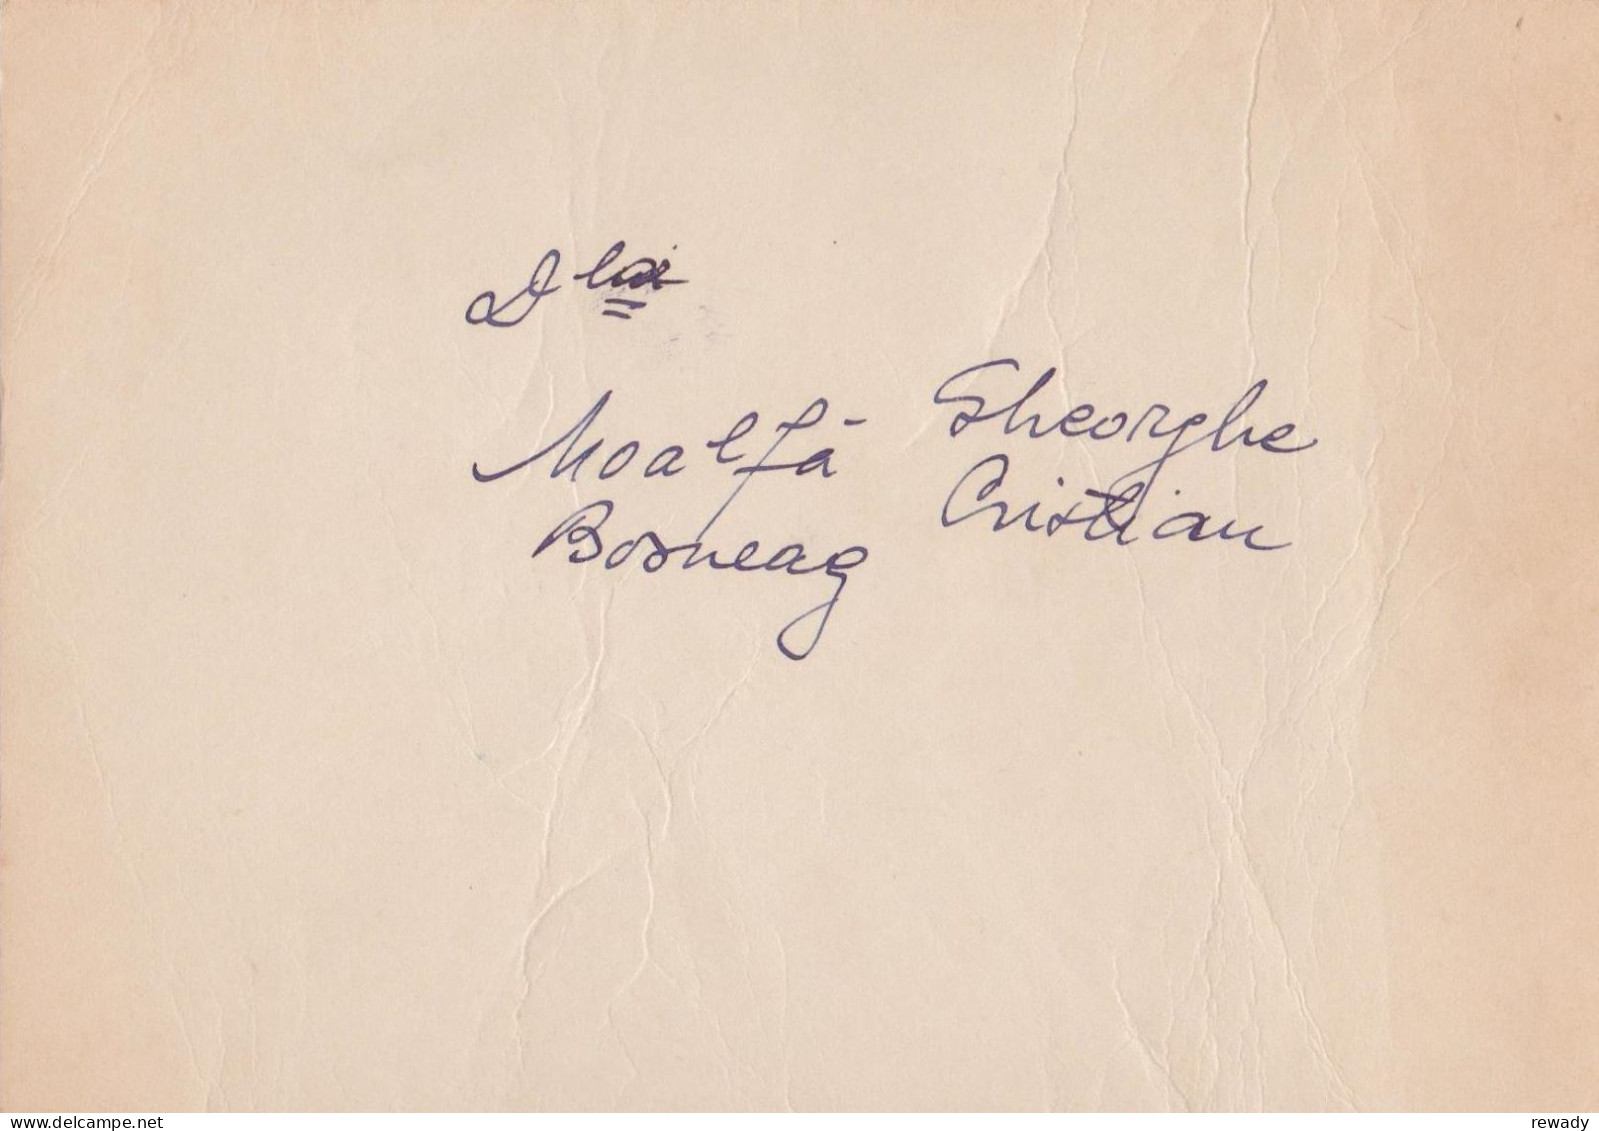 Moalfă Gheorghe
Bosneag Cristian
delcampe.net
rewady